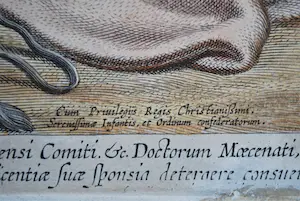 Cum Privilegijs Regis Christianissimi,
Serenissimæ Infantis, et Ordinum confederatorum.
ensi Comiti. &c. Doctorum Mœcenati,
icentiæ suæ sponsia detergere consuen